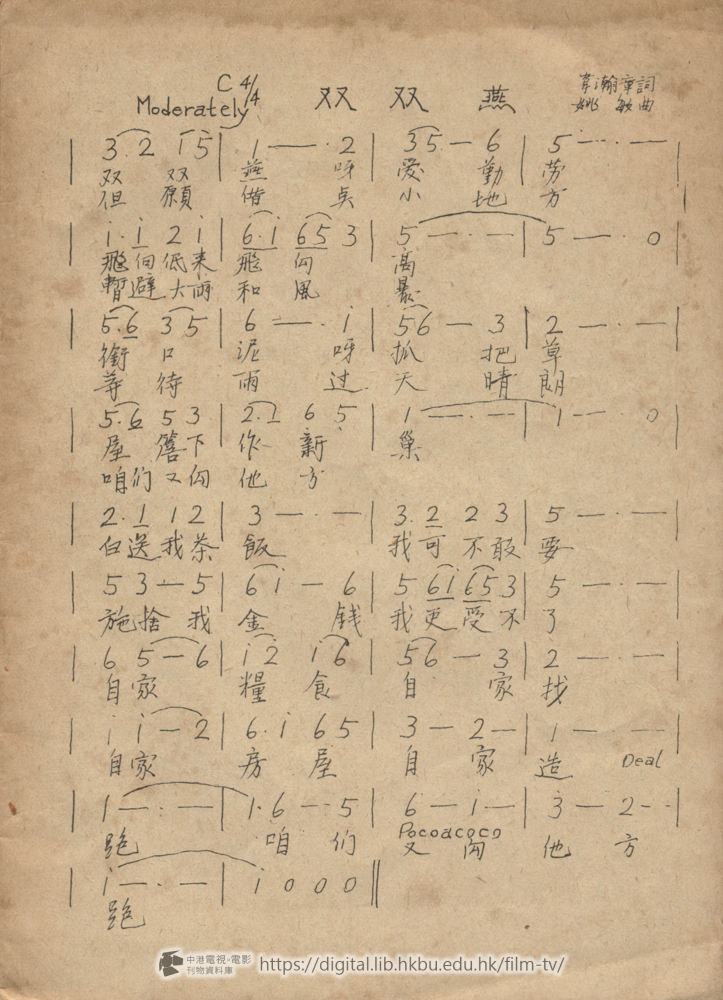 C 4/4
Moderately
双 双 燕
韋瀚章詞
姚 敏曲
| 3. 2 1 5 | 1 — · — 2 | 3 5 — 6 | 5 — · — · — |
双 双 燕 呀 爱 勤 劳
但 願 偕 小 地 方
| i. i 2 i | 6. i 6 5 3 | 5 — · — · — | 5 — · — · 0 |
飛 向 低 来 飛 向 高
暫 避 大 雨 和 風 暴
| 5. 6 3 5 | 6 — · — i | 5 6 — 3 | 2 — · — · — |
銜 口 泥 呀 抓 把 草
等 待 雨 过 天 晴 朗
| 5. 6 5 3 | 2. 1 6 5 | 1 — · — · — | 1 — · — · 0 |
屋 簷 下 作 新 巢
咱 们 又 向 他 方
| 2. 1 1 2 | 3 — · — · — | 3. 2 2 3 | 5 — · — · — |
白 送 我 茶 飯 我 可 不 敢 要
| 5 3 — 5 | 6 i — 6 | 5 6 i 6 5 3 | 5 — · — · — |
施 捨 我 金 钱 我 更 受 不 了
| 6 5 — 6 | i 2 i 6 | 5 6 — 3 | 2 — · — · — |
自 家 糧 食 自 家 找
| i i — 2 | 6. i 6 5 | 3 — 2 — | 1 — · — · — |
自 家 房 屋 自 家 造
| 1 — · — · — | 1. 6 — 5 | 6 — 1 — | 3 — 2 — |
Pocoacoco
跑 咱 们 又 向 他 方
| i — · — · — | i 0 0 0 ||
跑
中港電視·電影
刊物資料庫
https://digital.lib.hkbu.edu.hk/film-tv/